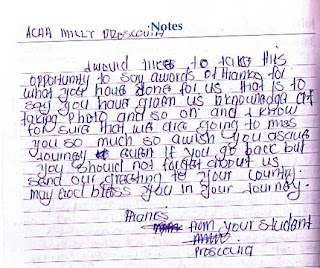 :Notes
ACAA MILLY PROSCOVIA
I would likes to take this
opportunity to say awards of thanks for
what you have done for us that is to
say you have given us knowledge of
taking photo and so on and I know
for sure that we are going to miss
you so much so awish you asave
Journey even if you go back but
you should not forget about us
send our greeting to your country.
may God bless you in your Journey.
Thanes
from your student
Proscovia